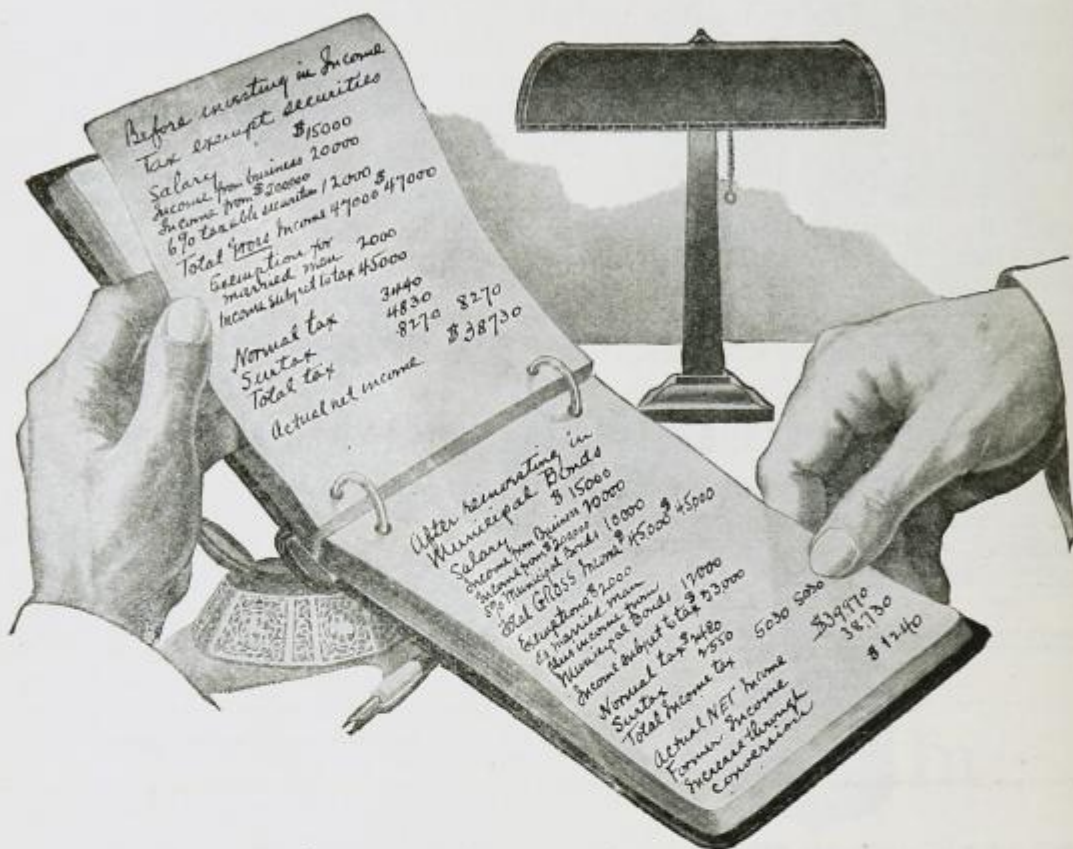 Before investing in Income
Tax exempt securities
Salary $15000
Income from business 20000
Income from $200000
6% taxable securities 12000 $
Total Gross Income 47000 47000
Exemption for
married man 2000
Income subject to tax 45000
Normal tax 3440
Surtax 4830
Total tax 8270 8270
Actual net income $38730
After reinvesting in
Municipal Bonds
Salary $15000
Income from Business 20000
Income from $200000
5% Municipal Bonds 10000 $
Total GROSS Income $45000 45000
Exemptions $2000
as married man
plus income from
Municipal Bonds 12000
Income subject to tax $33000
Normal tax $2480
Surtax 2550
Total Income tax 5030 5030
Actual NET Income $39970
Former Income 38730
Increase through
conversion $1240